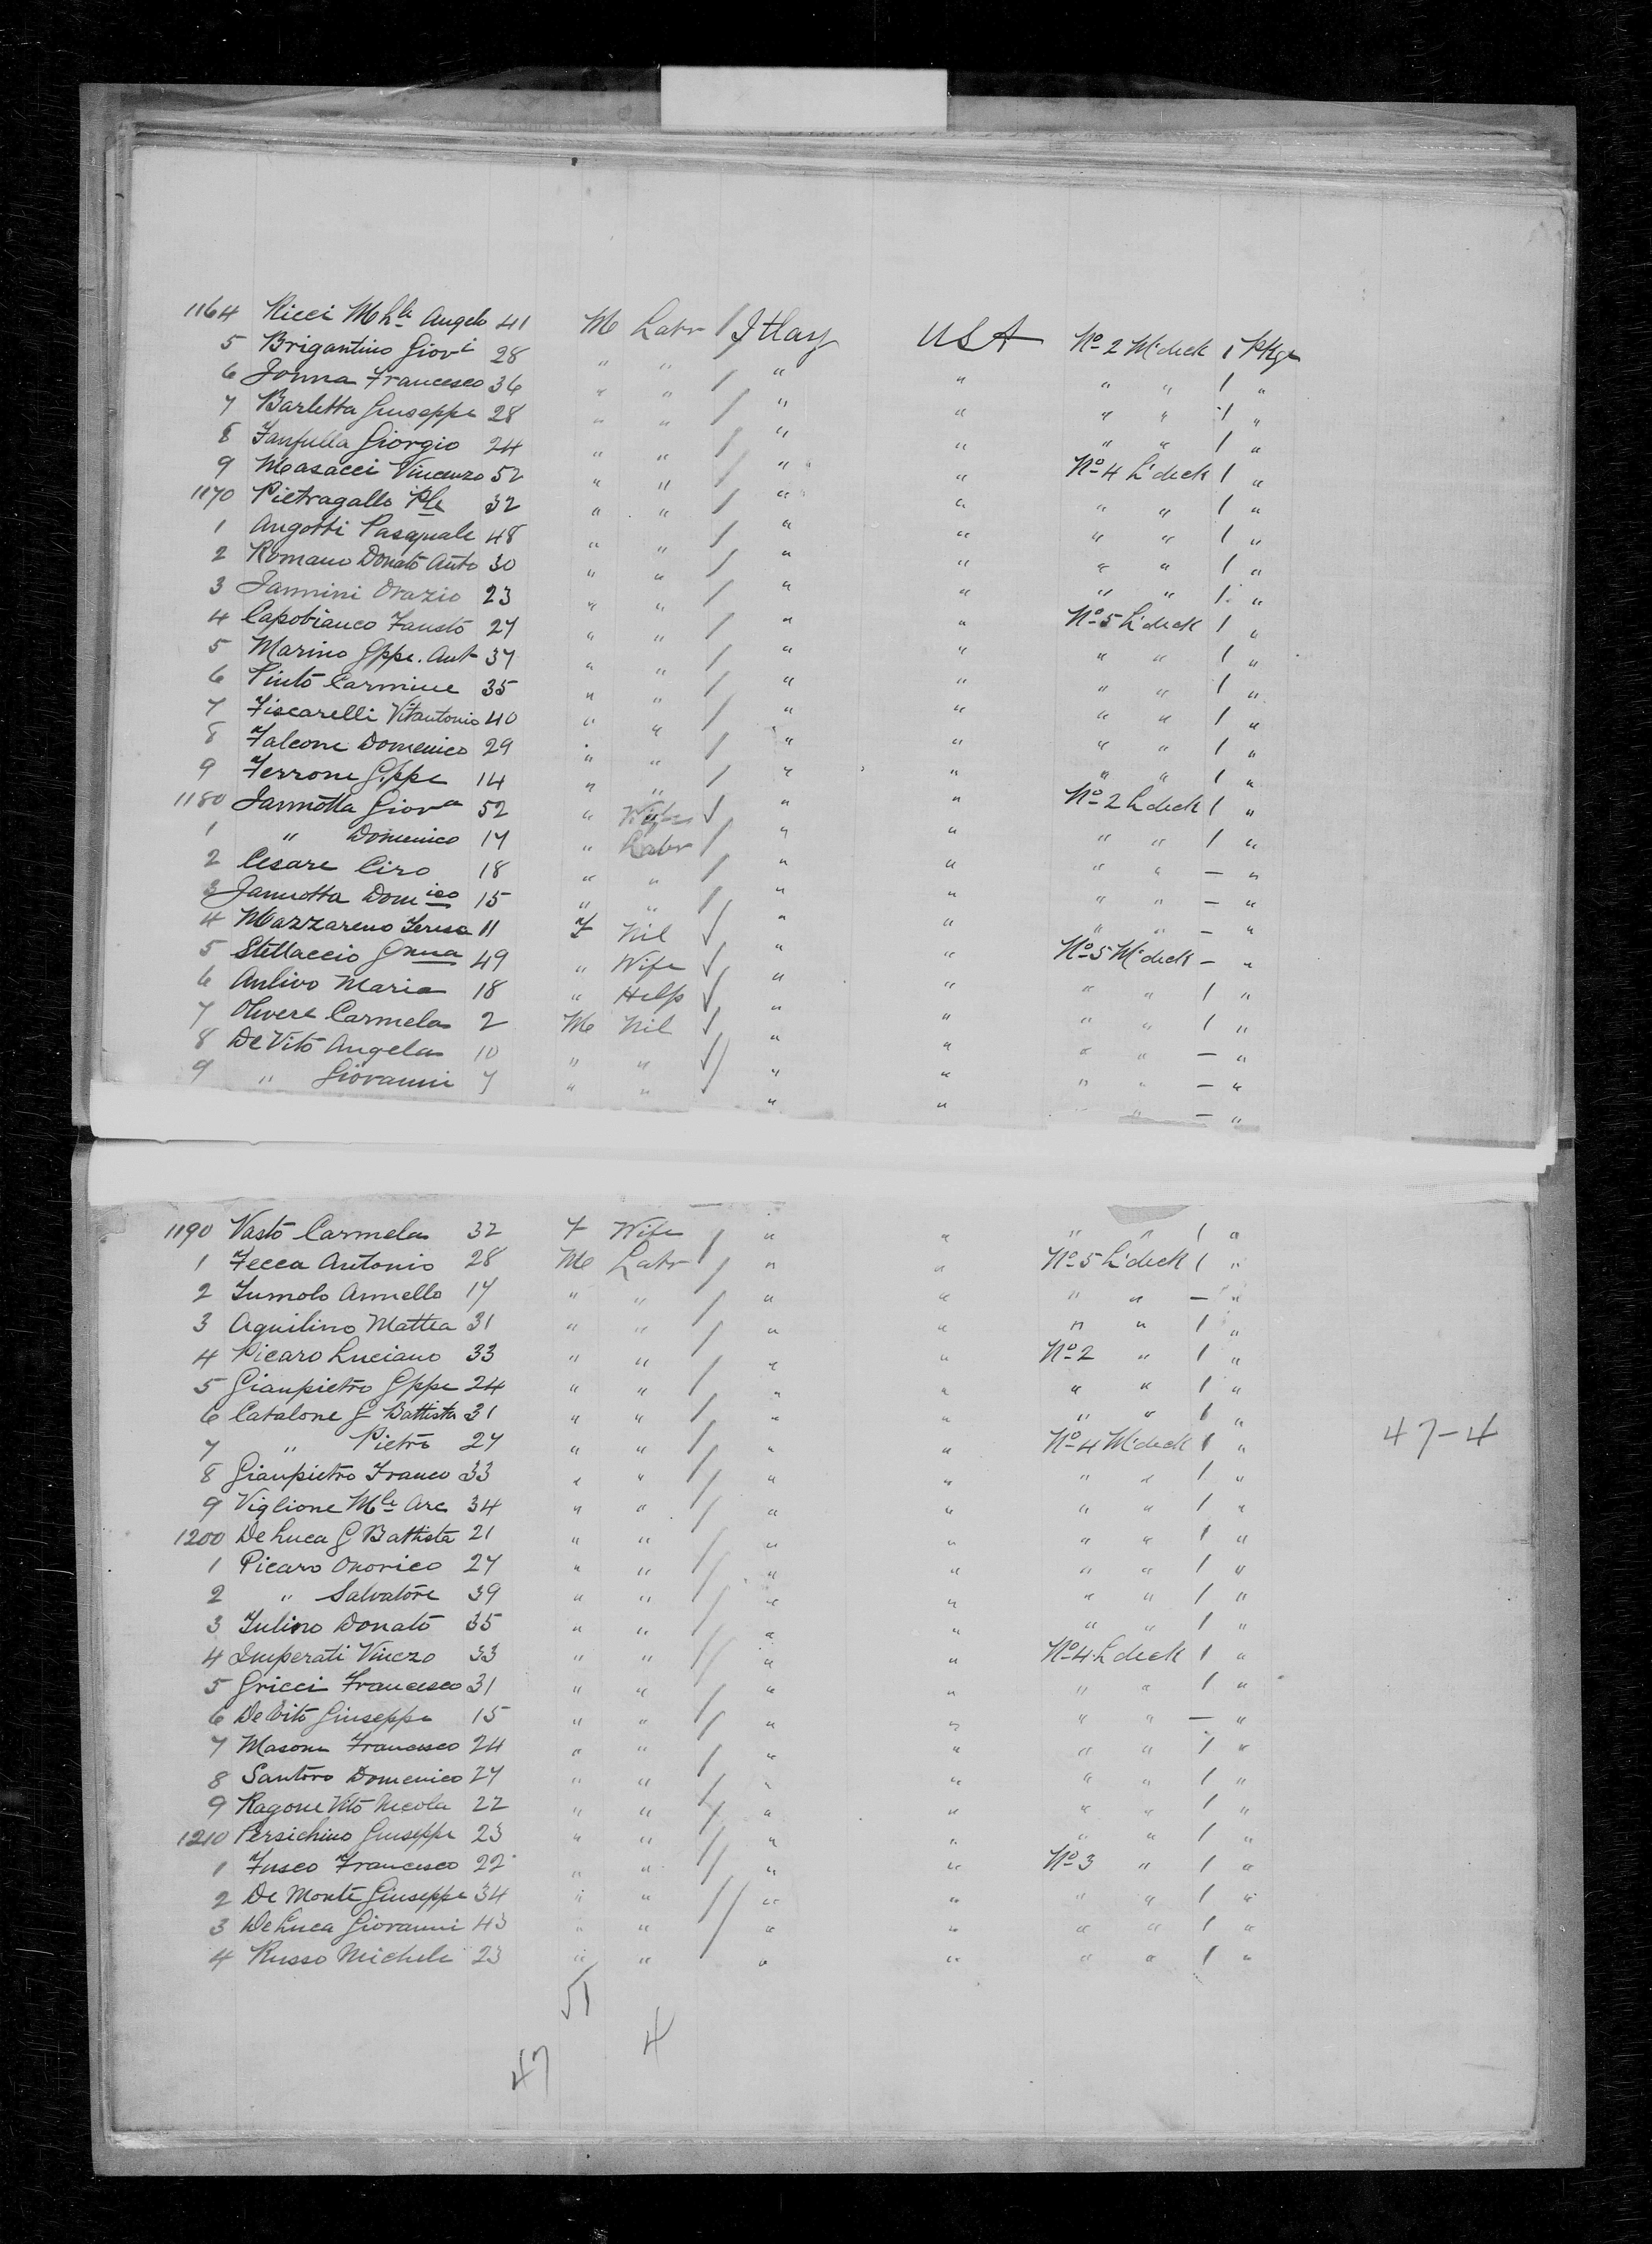 1164 Ricci Mhle Angelo 41 M Labr / Itlay USA No 2 M'deck 1 Pkge
5 Brigantino Giovi 28 " " / " " " " 1 "
6 Jonna Francesco 36 " " / " " " " 1 "
7 Barletta Giuseppe 28 " " / " " " " 1 "
8 Fanfulla Giorgio 24 " " / " " No 4 L'deck 1 "
9 Masacci Vincenzo 52 " " / " " " " 1 "
1170 Pietragallo Ple 32 " " / " " " " 1 "
1 Angotti Pasquale 48 " " / " " " " 1 "
2 Romano Donato Anto 30 " " / " " " " 1 "
3 Jannini Orazio 23 " " / " " No 5 L'deck 1 "
4 Capobianco Fausto 27 " " / " " " " 1 "
5 Marino Gppe. Ant 37 " " / " " " " 1 "
6 Pinto Carmine 35 " " / " " " " 1 "
7 Fiscarelli Vitantonio 40 " " / " " " " 1 "
8 Falcone Domenico 29 " " / " " " " 1 "
9 Ferrone Gppe 14 " " / " " No 2 L deck 1 "
1180 Jannotta Giova 52 " Wife √ " " " " 1 "
1 " Domenico 17 " Labr / " " " " — "
2 Cesare Ciro 18 " " / " " " " — "
3 Jannotta Domico 15 " " / " " " " — "
4 Mazzareno Teresa 11 F Nil √ " " No 5 M'deck — "
5 Stellaccio Gnna 49 " Wife √ " " " " 1 "
6 Anlivo Maria 18 " Help √ " " " " 1 "
7 Olivere Carmela 2 M Nil √ " " " " — "
8 De Vito Angela 10 " " √ " " " " — "
9 " Giovanni 7 " " √ " " " " — "
1190 Vasto Carmela 32 F Wife / " " " " 1 "
1 Fecca Antonio 28 M Labr / " " No 5 L'deck 1 "
2 Fumolo Annello 17 " " / " " " " — "
3 Aquilino Mattea 31 " " / " " " " 1 "
4 Picaro Luciano 33 " " / " " No 2 " 1 "
5 Gianpietro Gppe 24 " " / " " " " 1 "
6 Catalone G Battista 31 " " / " " " " 1 "
7 " Pietro 27 " " / " " No 4 M'deck 1 " 47-4
8 Gianpietro Franco 33 " " / " " " " 1 "
9 Viglione Mle Arc 34 " " / " " " " 1 "
1200 De Luca G Battista 21 " " / " " " " 1 "
1 Picaro Onorico 27 " " / " " " " 1 "
2 " Salvatore 39 " " / " " " " 1 "
3 Iulino Donato 35 " " / " " " " 1 "
4 Imperati Vinczo 33 " " / " " No 4 L deck 1 "
5 Gricci Francesco 31 " " / " " " " 1 "
6 De Vito Giuseppe 15 " " / " " " " — "
7 Masone Francesco 24 " " / " " " " 1 "
8 Santoro Domenico 27 " " / " " " " 1 "
9 Ragone Vito Nicola 22 " " / " " " " 1 "
1210 Persichino Giuseppe 23 " " / " " " " 1 "
1 Fusco Francesco 22 " " / " " No 3 " 1 "
2 De Monte Giuseppe 34 " " / " " " " 1 "
3 De Luca Giovanni 43 " " / " " " " 1 "
4 Russo Michele 23 " " " " " " 1 "
51
47 4